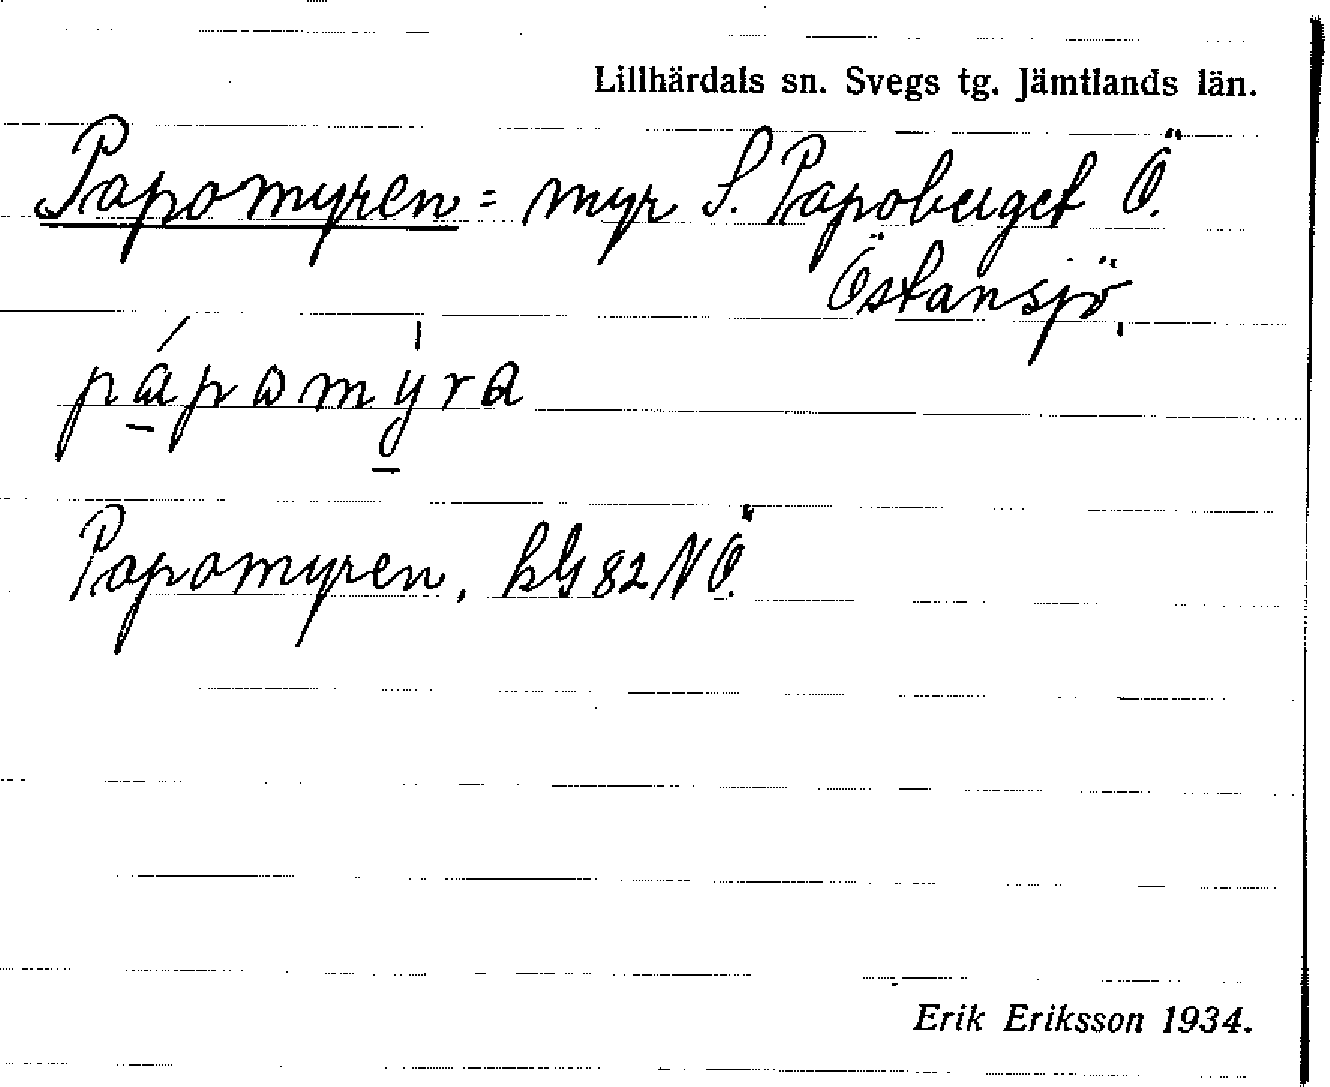 Lillhärdals sn. Svegs tg. Jämtlands län.
Papomyren = myr S. Papoberget Ö.
Östansjö.
pápomýra
Papomyren, kbl 82 NÖ.
Erik Eriksson 1934.